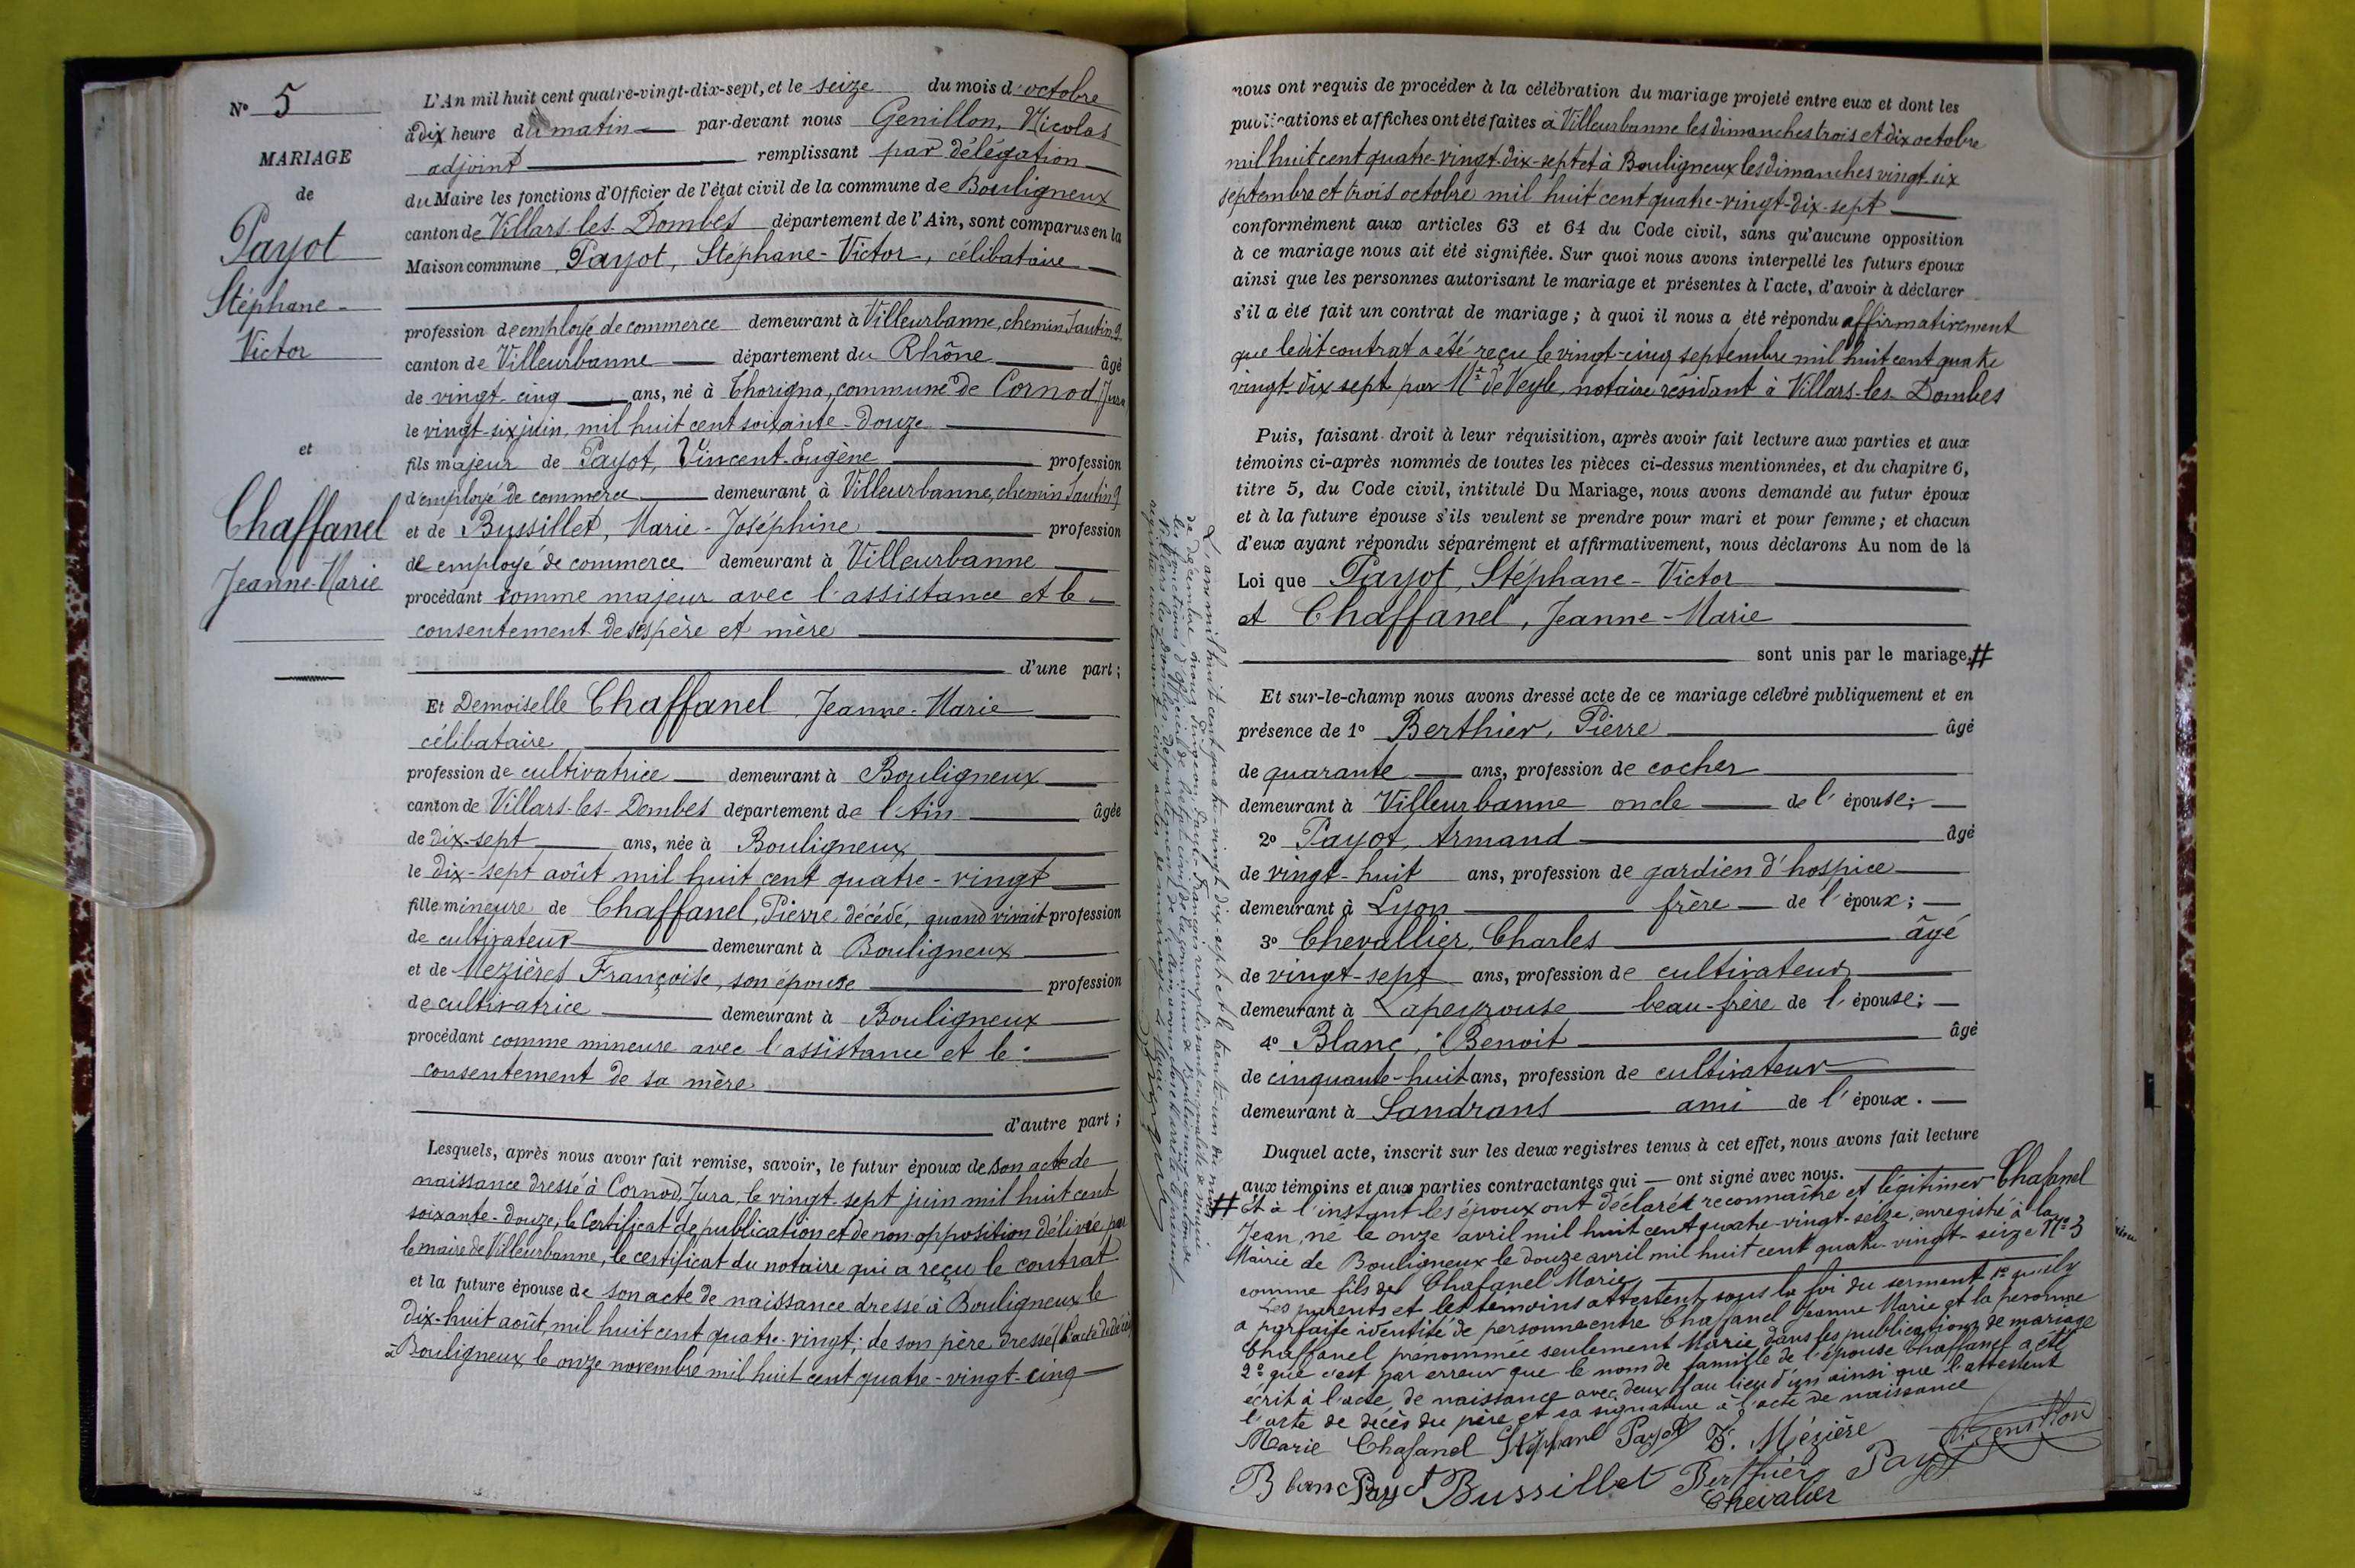 N° 5
MARIAGE
de
Payot
Stéphane-
Victor
et
Chaffanel
Jeanne-Marie
L'An mil huit cent quatre-vingt-dix-sept, et le seize du mois d'octobre
à dix heure du matin par-devant nous Genillon, Nicolas
adjoint remplissant par délégation
du Maire les fonctions d'Officier de l'état civil de la commune de Bouligneux
canton de Villars-les-Dombes département de l'Ain, sont comparus en la
Maison commune Payot, Stéphane-Victor, célibataire
profession de employé de commerce demeurant à Villeurbanne, chemin Jautin, 9
canton de Villeurbanne département du Rhône âgé
de vingt-cinq ans, né à Thorigna, commune de Cornod, Jura
le vingt-six juin, mil huit cent soixante-douze
fils majeur de Payot, Vincent-Eugène profession
d'employé de commerce demeurant à Villeurbanne, chemin Jautin 9
et de Bussillet, Marie-Joséphine profession
de employé de commerce demeurant à Villeurbanne
procédant comme majeur avec l'assistance et le
consentement de ses père et mère
d'une part;
Et Demoiselle Chaffanel Jeanne-Marie
célibataire
profession de cultivatrice demeurant à Bouligneux
canton de Villars-les-Dombes département de l'Ain âgée
de dix-sept ans, née à Bouligneux
le dix-sept août mil huit cent quatre-vingt
fille mineure de Chaffanel, Pierre décédé, quand vivait profession
de cultivateur demeurant à Bouligneux
et de Mezières Françoise, son épouse profession
de cultivatrice demeurant à Bouligneux
procédant comme mineure avec l'assistance et le
consentement de sa mère
d'autre part;
Lesquels, après nous avoir fait remise, savoir, le futur époux de son acte de
naissance dressé à Cornod, Jura, le vingt-sept juin mil huit cent
soixante-douze, le Certificat de publication et de non opposition délivrée par
le maire de Villeurbanne, le certificat du notaire qui a reçu le contrat
et la future épouse de son acte de naissance dressé à Bouligneux le
dix-huit août, mil huit cent quatre-vingt; de son père dressé (l'acte de décès)
à Bouligneux le onze novembre mil huit cent quatre-vingt-cinq
L'an mil huit cent quatre-vingt-dix-sept et le trente-un du mois
de décembre, nous
les fonctions d'officier de l'état civil de la commune de Bouligneux canton de
Villars les Dombes département de l'Ain avons clos et arrêté le présent
nous ont requis de procéder à la célébration du mariage projeté entre eux et dont les
publications et affiches ont été faites à Villeurbanne les dimanches trois et dix octobre
mil huit cent quatre-vingt-dix-sept et à Bouligneux les dimanches vingt-six
septembre et trois octobre mil huit cent quatre-vingt-dix-sept
conformément aux articles 63 et 64 du Code civil, sans qu'aucune opposition
à ce mariage nous ait été signifiée. Sur quoi nous avons interpellé les futurs époux
ainsi que les personnes autorisant le mariage et présentes à l'acte, d'avoir à déclarer
s'il a été fait un contrat de mariage; à quoi il nous a été répondu affirmativement
que ledit contrat a été reçu le vingt-cinq septembre mil huit cent quatre
vingt-dix sept par Me de Veyle, notaire résidant à Villars-les-Dombes
Puis, faisant droit à leur réquisition, après avoir fait lecture aux parties et aux
témoins ci-après nommés de toutes les pièces ci-dessus mentionnées, et du chapitre 6,
titre 5, du Code civil, intitulé Du Mariage, nous avons demandé au futur époux
et à la future épouse s'ils veulent se prendre pour mari et pour femme; et chacun
d'eux ayant répondu séparément et affirmativement, nous déclarons Au nom de la
Loi que Payot, Stéphane-Victor
et Chaffanel, Jeanne-Marie
sont unis par le mariage. #
Et sur-le-champ nous avons dressé acte de ce mariage célébré publiquement et en
présence de 1° Berthier, Pierre âgé
de quarante ans, profession de cocher
demeurant à Villeurbanne oncle de l'épouse;
2° Payot, Armand âgé
de vingt-huit ans, profession de gardien d'hospice
demeurant à Lyon frère de l'époux;
3° Chevallier, Charles âgé
de vingt-sept ans, profession de cultivateur
demeurant à Lapeyrouse beau-frère de l'épouse;
4° Blanc, Benoit âgé
de cinquante-huit ans, profession de cultivateur
demeurant à Sandrans ami de l'époux.
Duquel acte, inscrit sur les deux registres tenus à cet effet, nous avons fait lecture
aux témoins et aux parties contractantes qui — ont signé avec nous.
# Et à l'instant les époux ont déclarés reconnaître et légitimer Chafanel
Jean, né le onze avril mil huit cent quatre-vingt-seize, enregistré à la
Mairie de Bouligneux le douze avril mil huit cent quatre-vingt-seize N° 3
comme fils de Chafanel Marie,
Les parents et les témoins attestent sous la foi du serment 1° qu'il y
a parfaite identité de personne entre Chaffanel Jeanne Marie et la personne
Chaffanel prénommée seulement Marie dans les publications de mariage
2° que c'est par erreur que le nom de famille de l'épouse Chaffanel a été
écrit à l'acte de naissance avec deux f au lieu d'un ainsi que l'attestent
l'acte de décès du père et sa signature à l'acte de naissance
Marie Chafanel Stéphane Payot F. Mézière Genillon
Blanc Payot Bussillet Berthier Payot
Chevalier